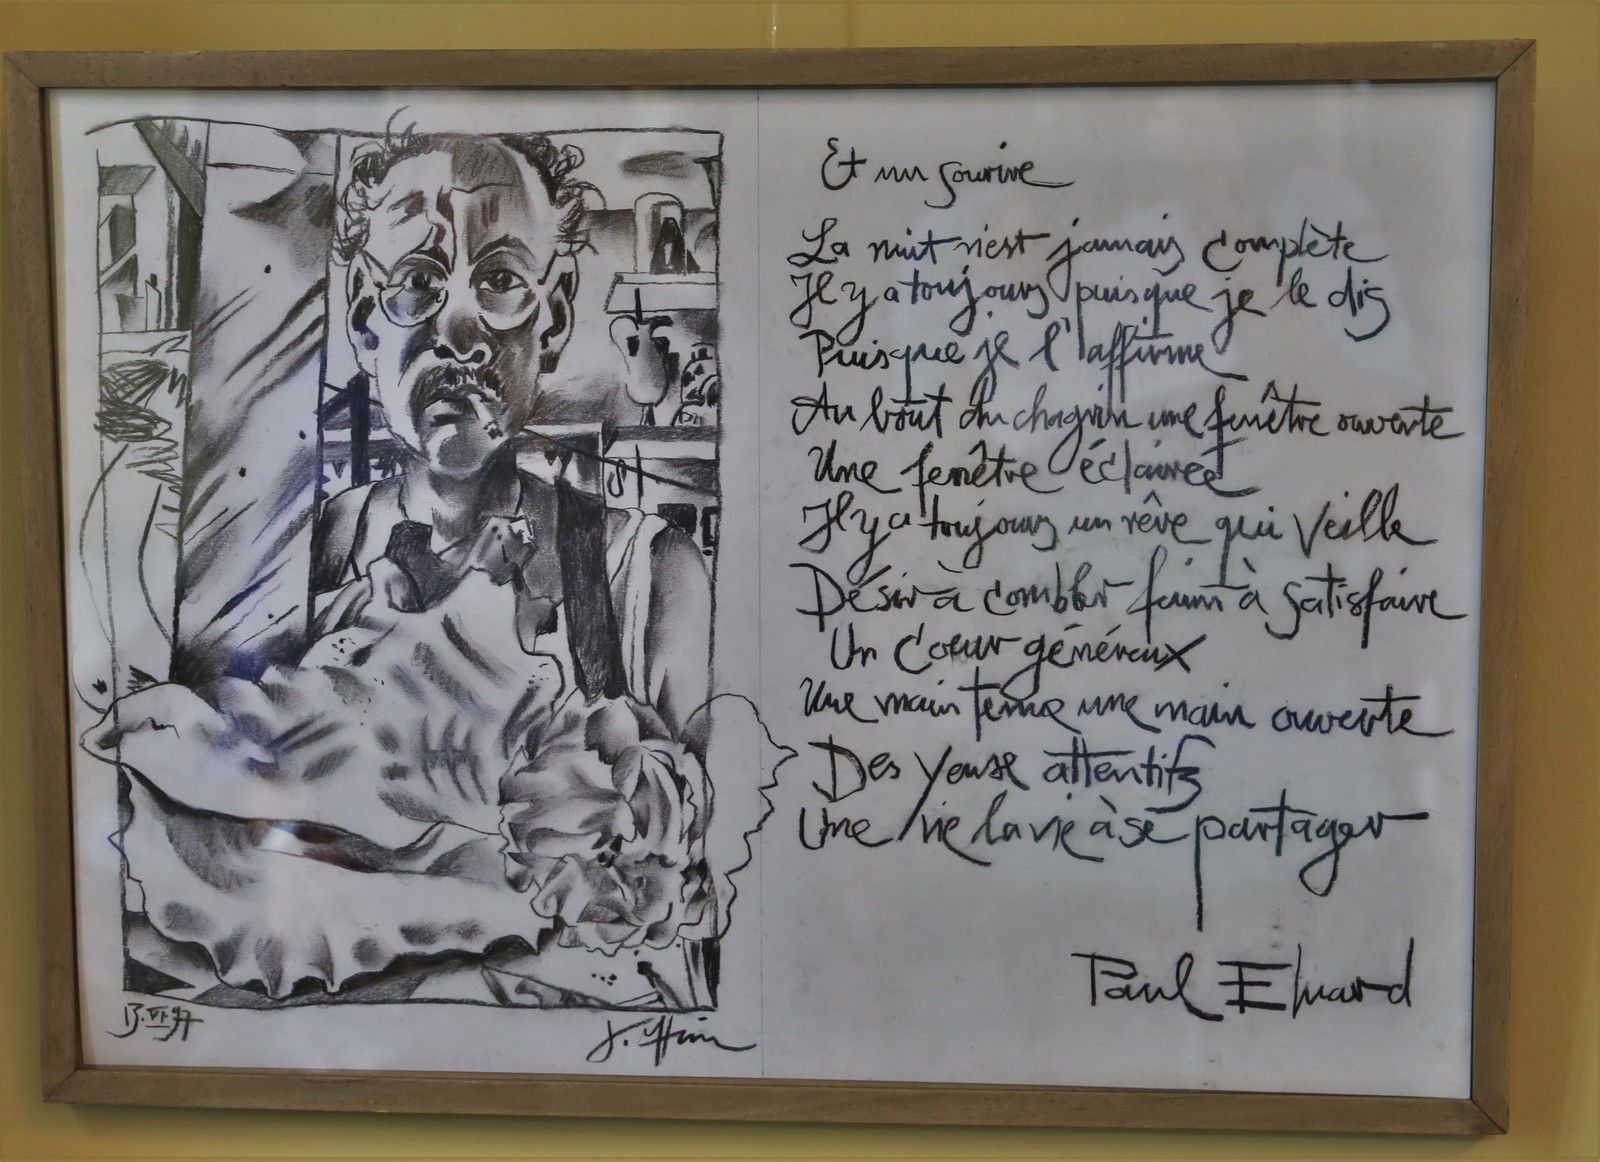 Et un sourire
La nuit n'est jamais complète
Il y a toujours puisque je le dis
Puisque je l'affirme
Au bout du chagrin une fenêtre ouverte
Une fenêtre éclairée
Il y a toujours un rêve qui veille
Désir à combler faim à satisfaire
Un Coeur généreux
Une main tendue une main ouverte
Des yeux attentifs
Une vie la vie à se partager
Paul Eluard
13.VI.97